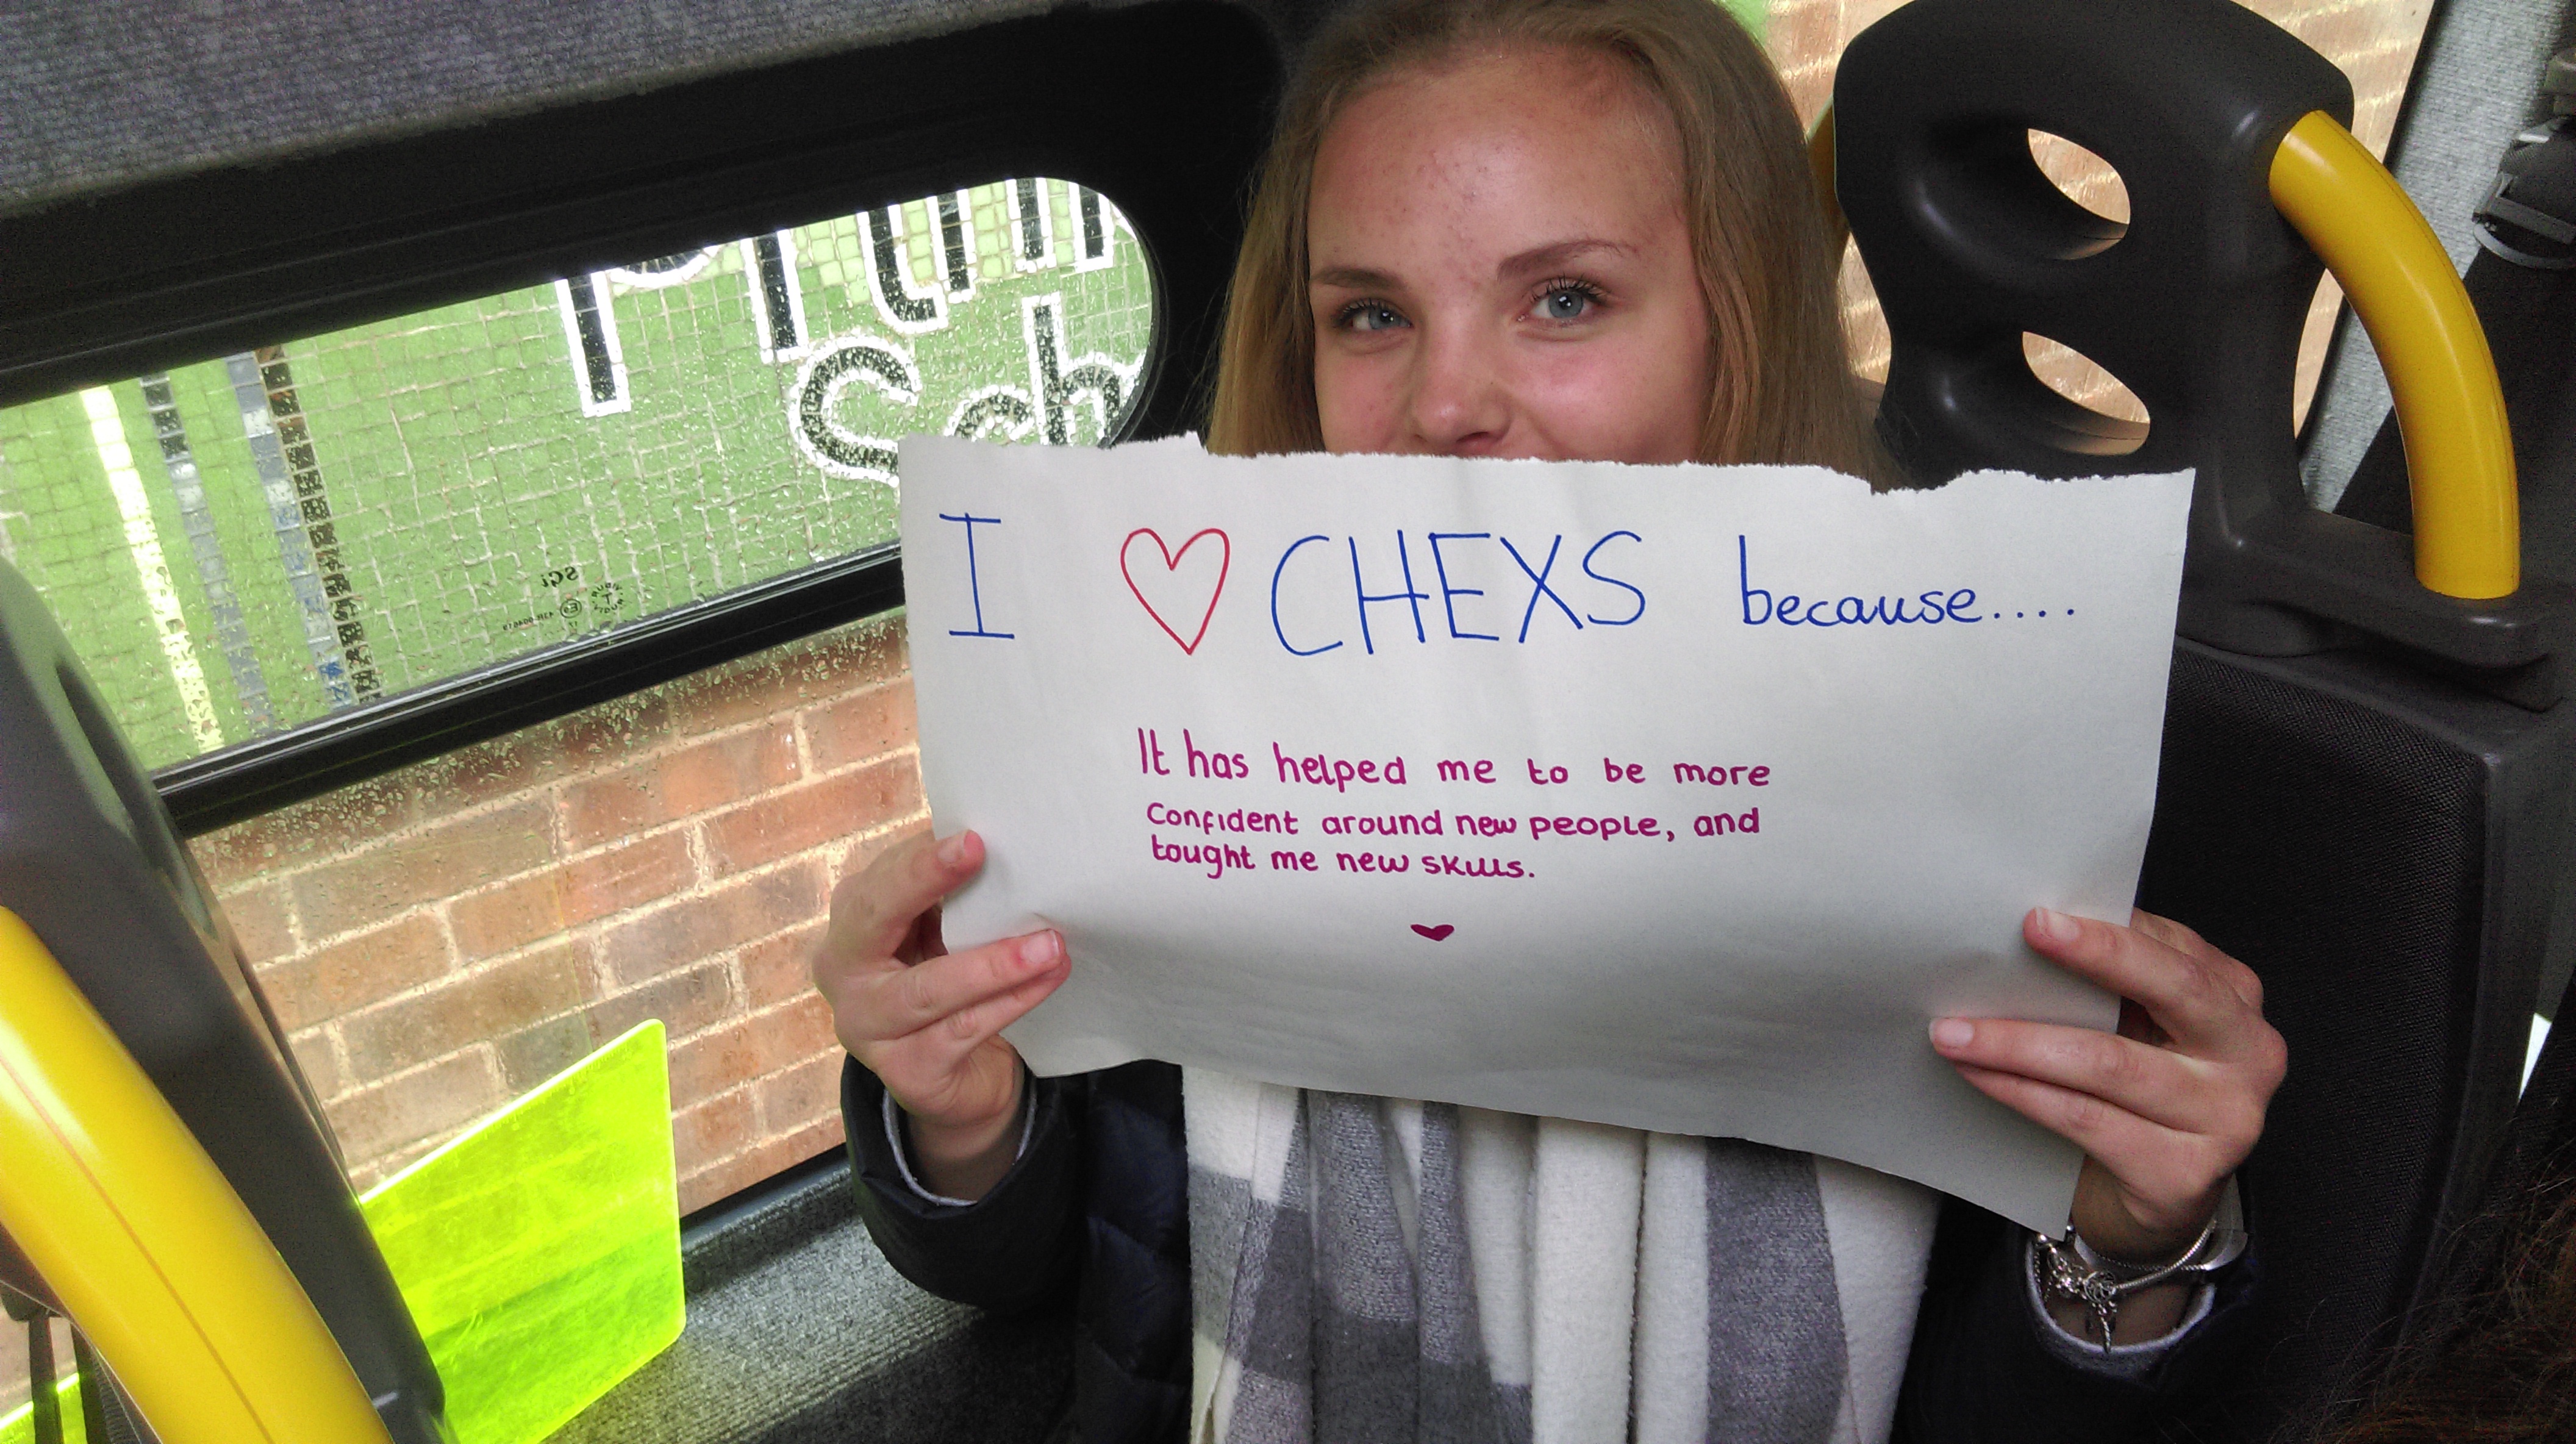 Sch
I ♡ CHEXS because....
It has helped me to be more
Confident around new people, and
tought me new skills.